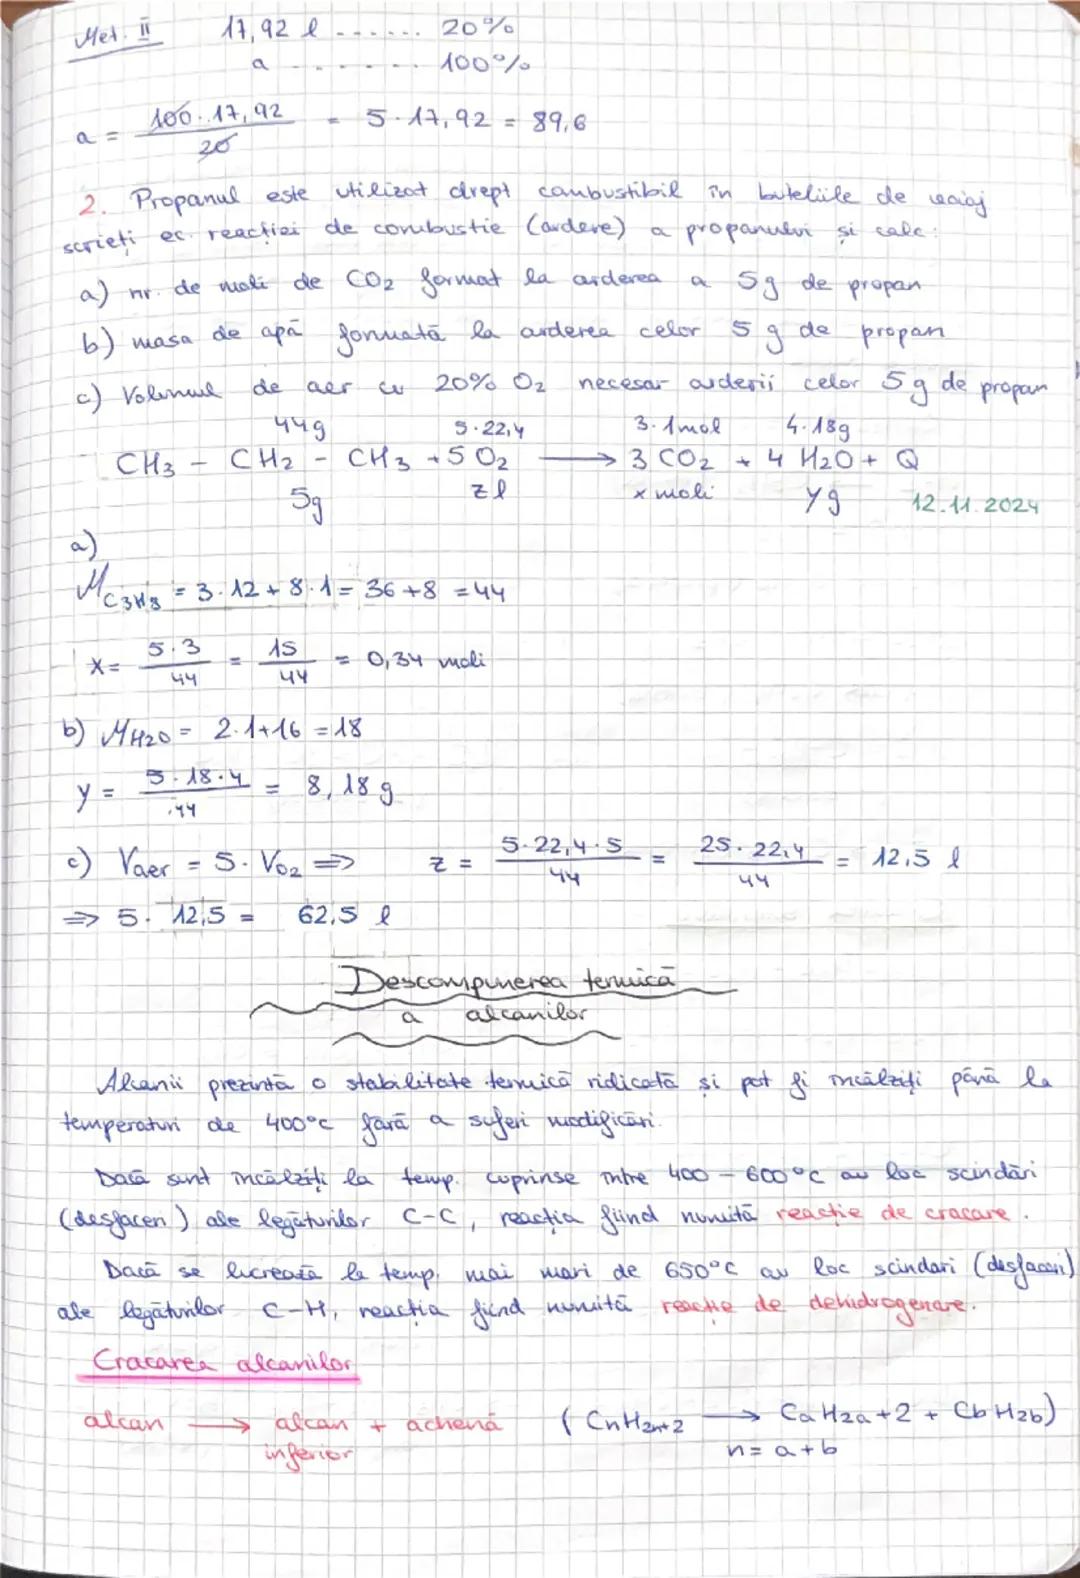 Met. II 17,92 l ...... 20%
a ....... 100%
a = 100 · 17,92 / 20 = 5 · 17,92 = 89,6
2. Propanul este utilizat drept combustibil în buteliile de
scrieți ec. reacției de combustie (ardere) a propanului și calc:
a) nr. de moli de CO2 format la arderea a 5g de propan
b) masa de apă formată la arderea celor 5 g de propan
c) Volumul de aer cu 20% O2 necesar arderii celor 5 g de propan
44g 5·22,4 3·1mol 4·18g
CH3 - CH2 - CH3 + 5 O2 ⟶ 3 CO2 + 4 H2O + Q
5g z l x moli y g 12.11.2024
a)
MC3H8 = 3·12 + 8·1 = 36 + 8 = 44
x = 5·3 / 44 = 15 / 44 = 0,34 moli
b) MH2O = 2·1+16 = 18
y = 5·18·4 / 44 = 8,18 g
c) Vaer = 5·VO2 ⟹ z = 5·22,4·5 / 44 = 25·22,4 / 44 = 12,5 l
⟹ 5· 12,5 = 62,5 l
Descompunerea termică
a alcanilor
Alcanii prezintă o stabilitate termică ridicată și pot fi încălziți până la
temperaturi de 400°C fără a suferi modificări.
Dacă sunt încălziți la temp. cuprinse între 400 - 600°C au loc scindări
(desfaceri) ale legăturilor C-C, reacția fiind numită reacție de cracare.
Dacă se lucrează la temp. mai mari de 650°C au loc scindari (desfaceri)
ale legăturilor C-H, reacția fiind numită reacție de dehidrogenare.
Cracarea alcanilor
alcan ⟶ alcan + achenă ( CnH2n+2 ⟶ CaH2a+2 + CbH2b)
inferior n = a+b